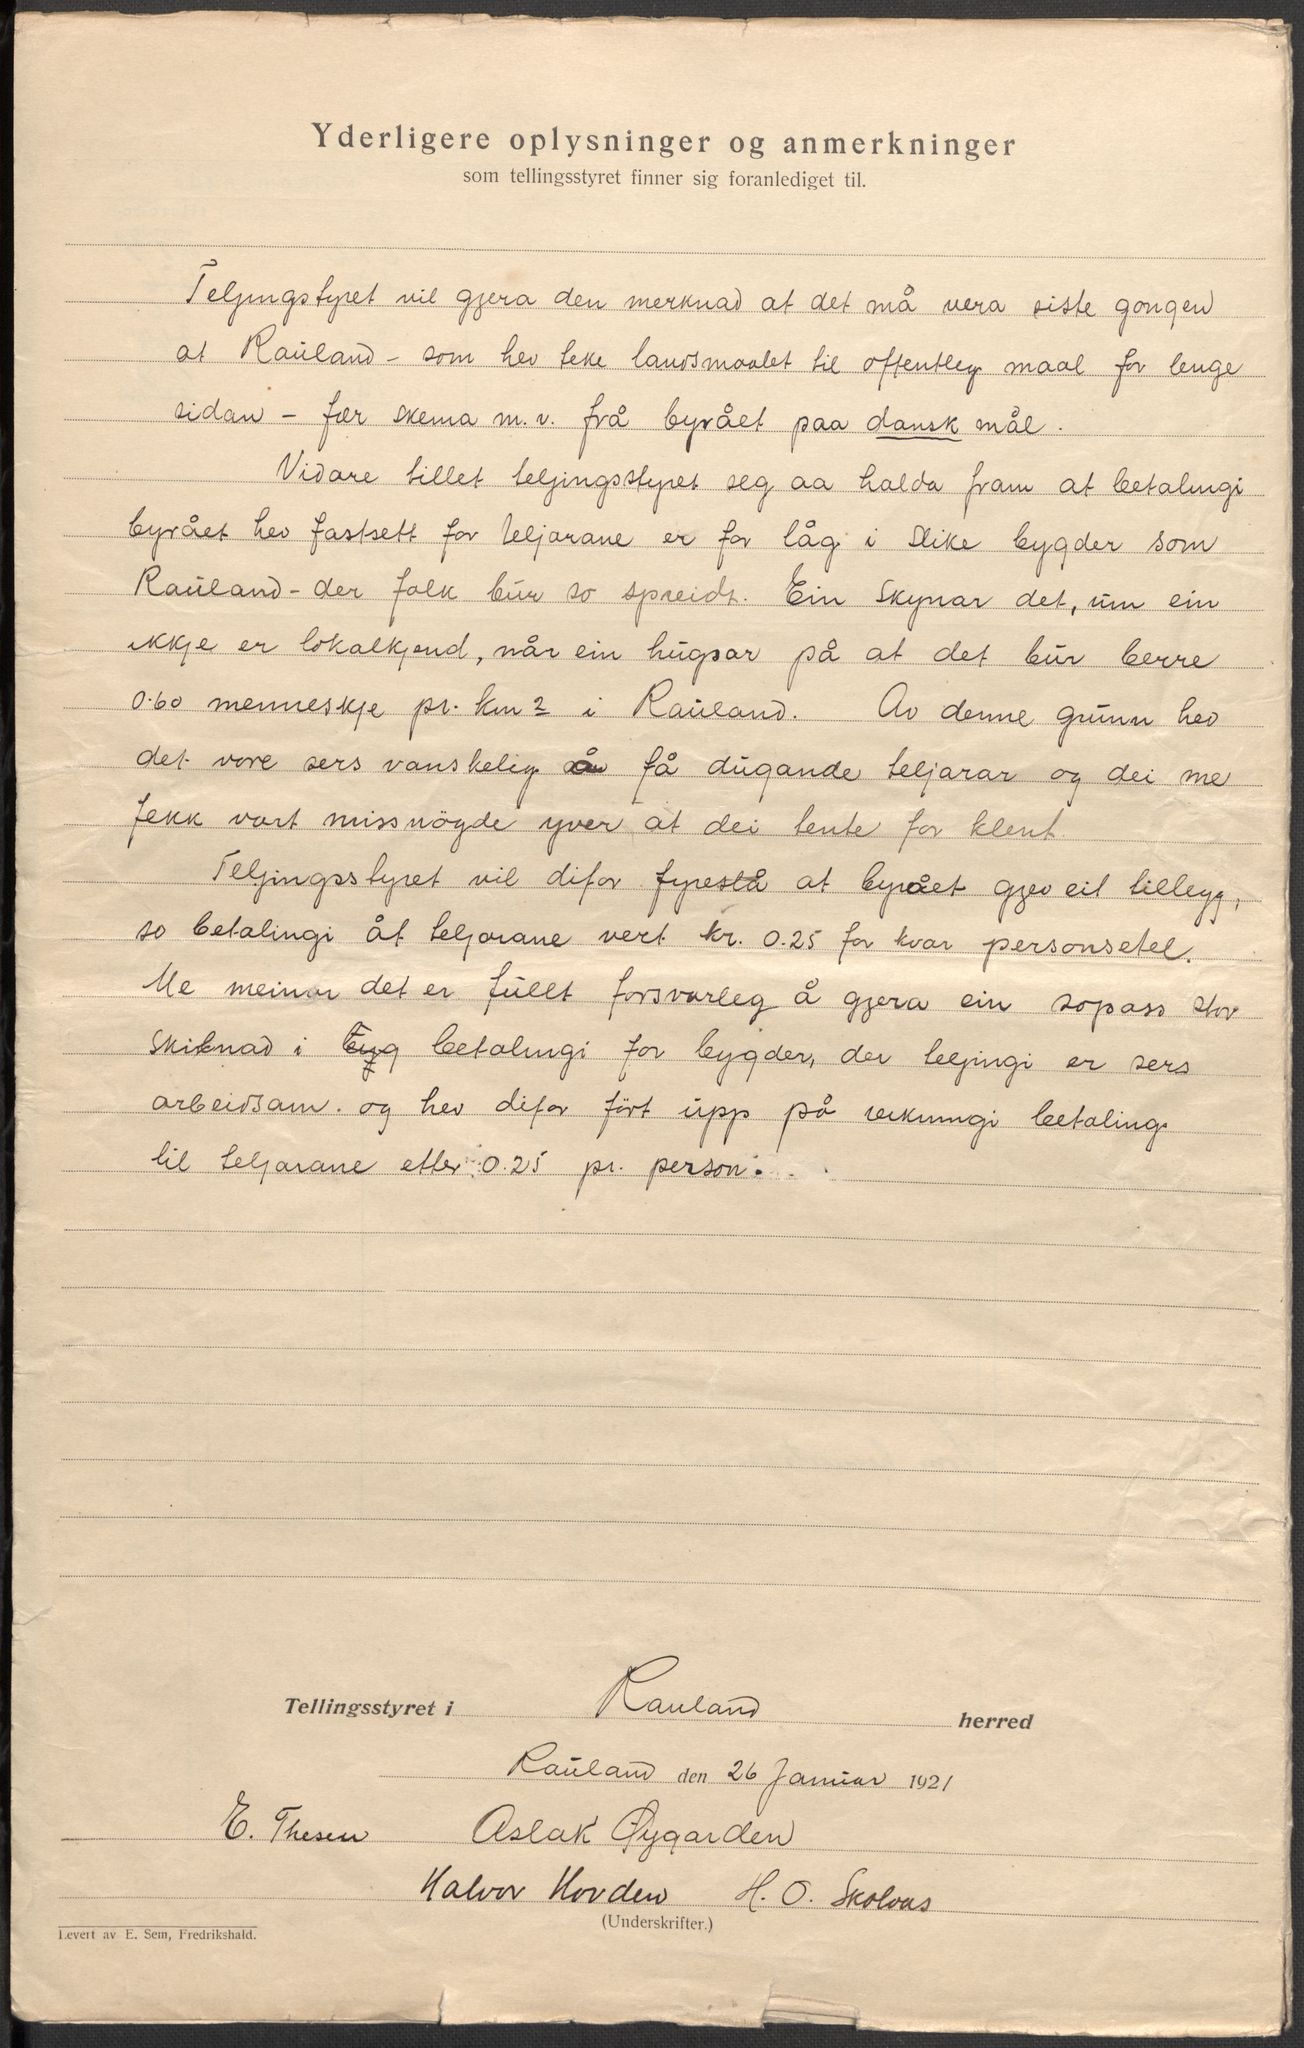 Yderligere oplysninger og anmerkninger
som tellingsstyret finner sig foranlediget til.
Teljingstyret vil gjera den merknad at det må vera siste gongen
at Rauland – som hev teke landsmaalet til offentleg maal for lenge
sidan – fær skema m.v. frå byrået paa dansk mål.
Vidare tillet teljingsstyret seg aa halda fram at betalingi
byrået hev fastsett for teljarane er for låg i slike bygder som
Rauland – der folk bur so spreidt. Ein skynar det, um ein
ikkje er lokalkjend, når ein hugsar på at det bur berre
0.60 menneskje pr. km2 i Rauland. Av denne grunn hev
det vore sers vanskeleg å få dugande teljarar og dei me
fekk vart missnögde yver at dei tente for klent.
Teljingsstyret vil difor fyreslå at byrået gjev eit tillegg,
so betalingi åt teljarane vert kr. 0.25 for kvar personsetel.
Me meinar det er fullt forsvarleg å gjera ein sopass stor
skilnad i betalingi for bygder, der teljingi er sers
arbeidsam. og hev difor fört upp på rekningi betaling
til teljarane etter 0.25 pr. person.
Tellingsstyret i Rauland herred
Rauland den 26 Januar 1921
E. Thesen Aslak Øygarden
Halvor Hovden H. O. Skolvas
(Underskrifter.)
Levert av E. Sem, Fredrikshald.